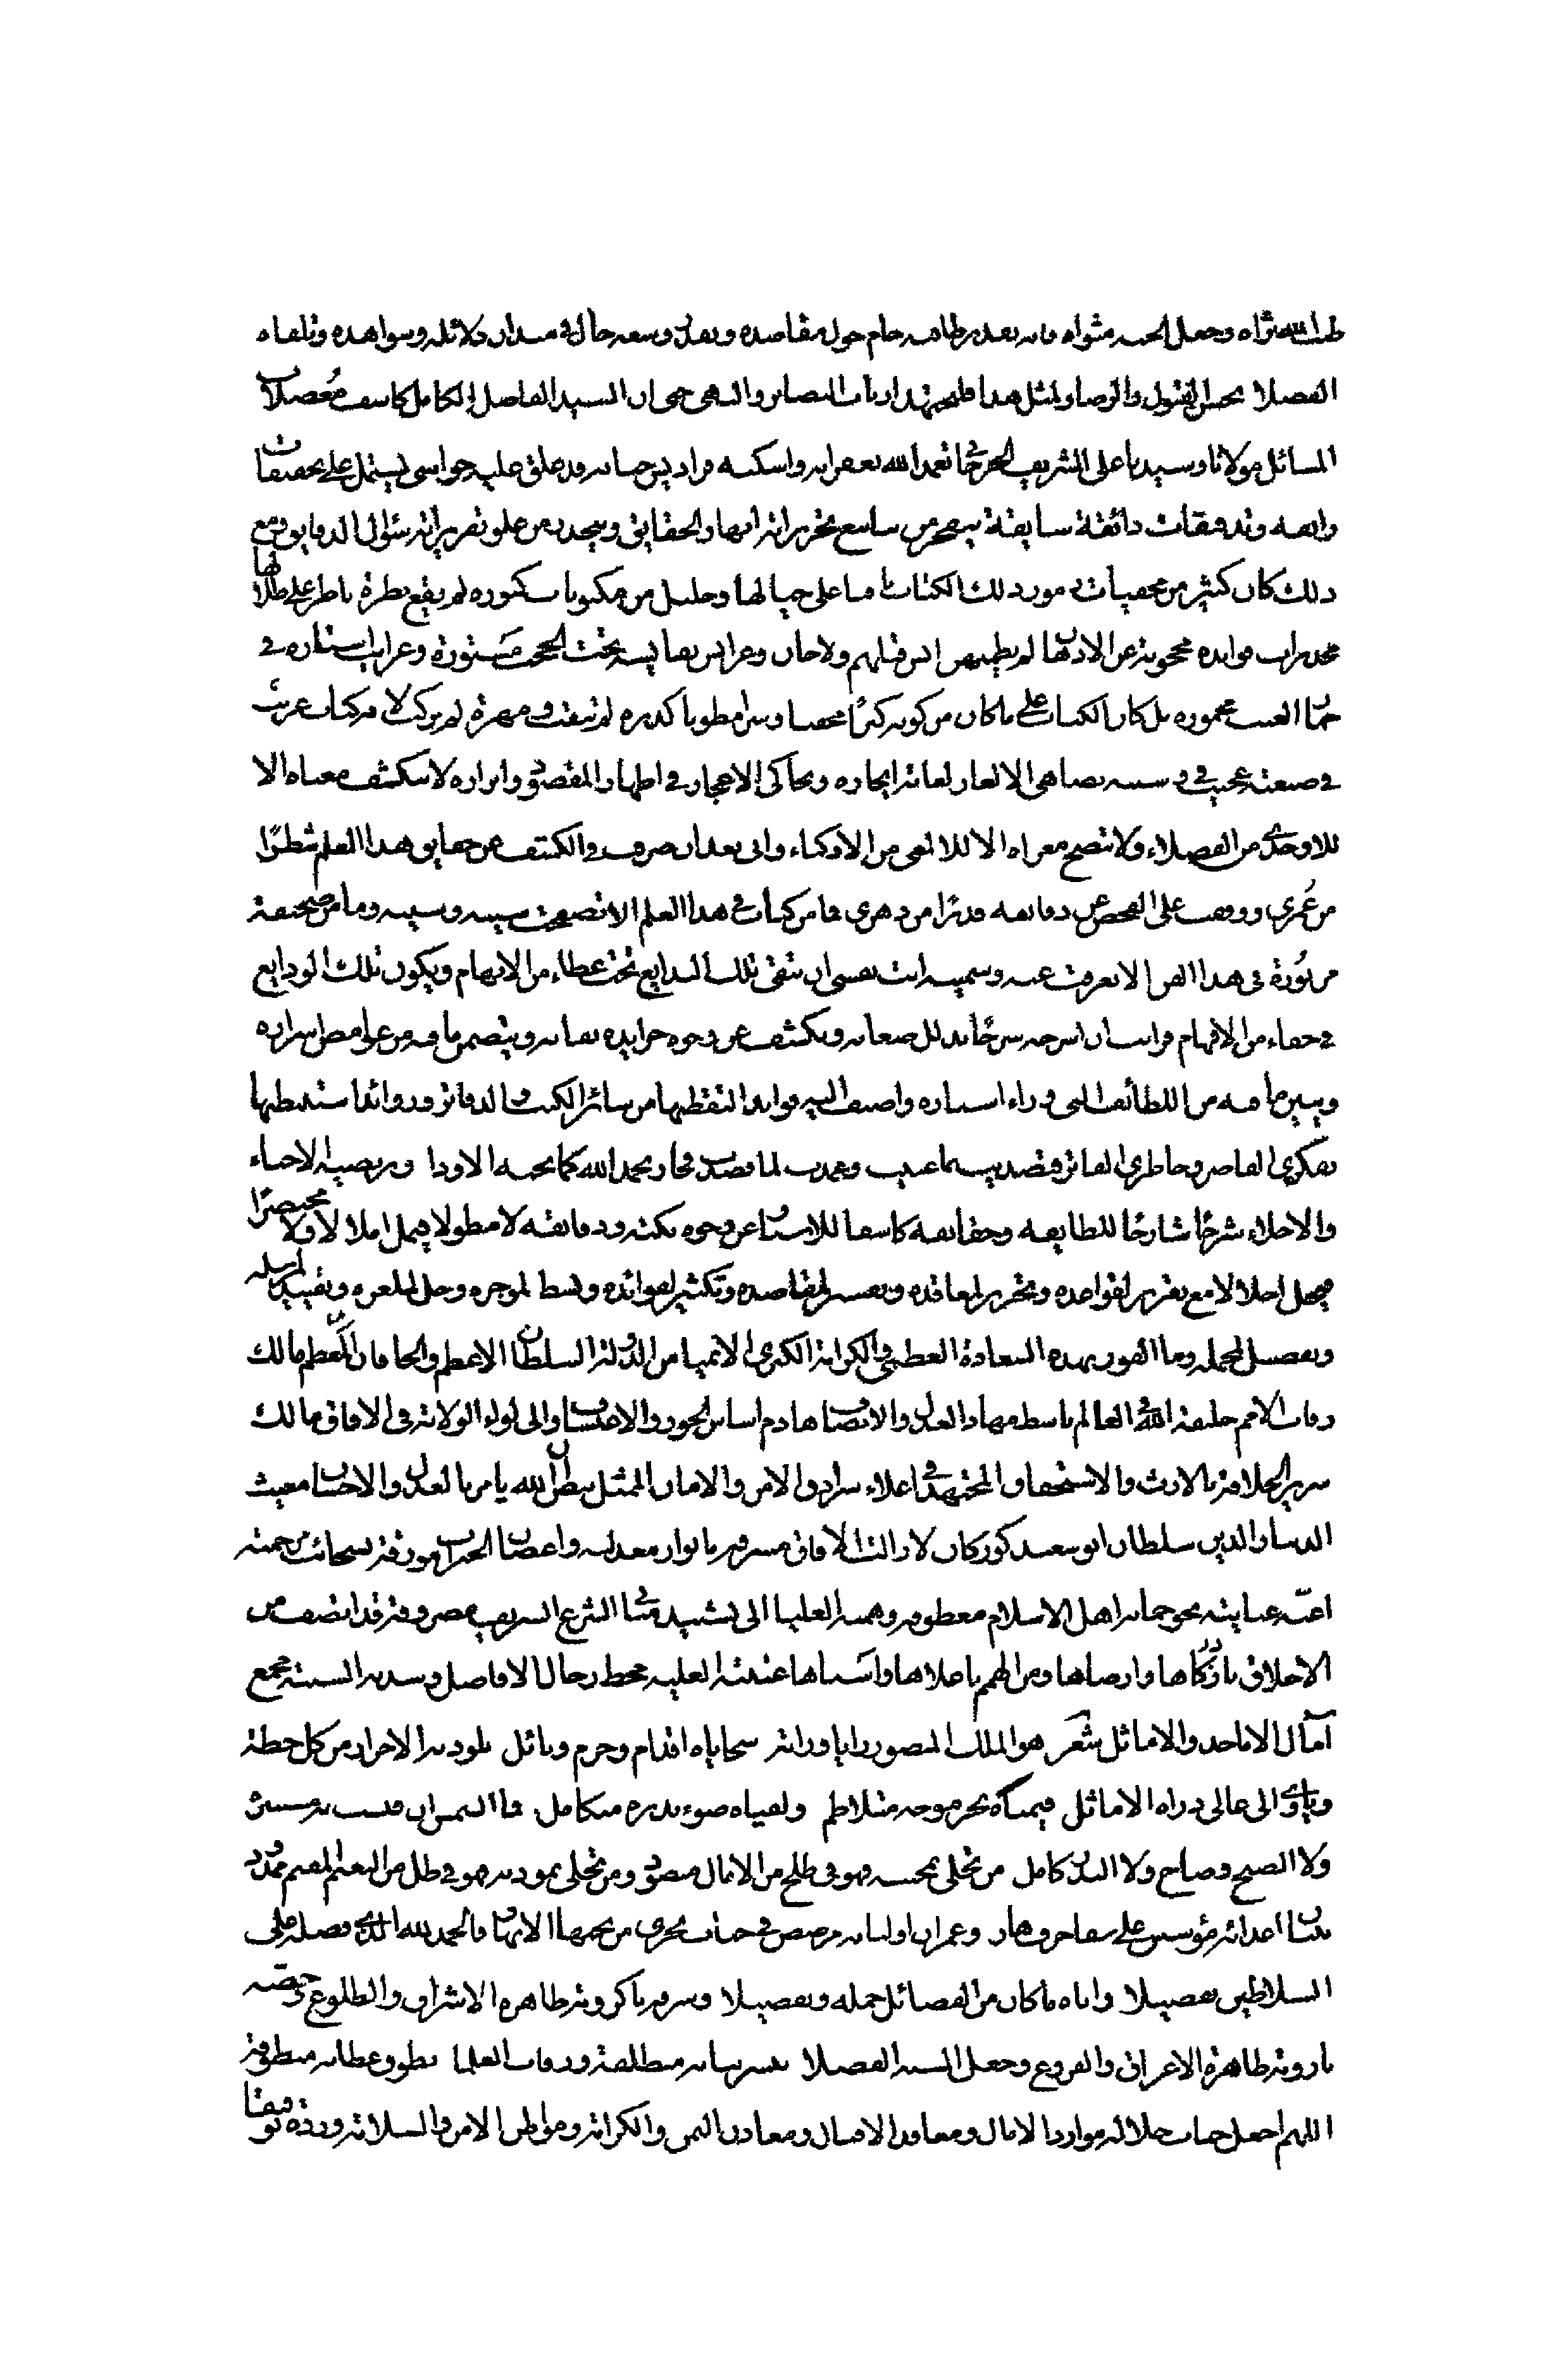 طيب الله ثراه وجعل الجنة مثواه فانه بقدر طاقته حام حول مقاصده وبقدر وسعه جال في ميدان دلائله وشواهده وتلقاه
الفضلاء بحسن القبول والرضا ولمثل هذا فليجتهد ارباب البصاير والنهى حتى ان السيد الفاضل الكامل كاشف معضلات
المسائل مولانا وسيدنا على الشريف الجرجاني تغمده الله بغفرانه واسكنه فراديس جنانه قد علق عليه حواشي يشتمل على تحقيقات
رايقة وتدقيقات رائقة سايقة يتفجر من ينابيع تحريراته انهار الحقايق وينحدر من علو تقريراته سيول الدقايق ومع
ذلك كان كثير من مخفيات رموز ذلك الكتاب باقيا على حيالها وجليل من مكنونات كنوزه لم يقع نظرة ناظر على طلالها
مخدرات فوايده محجوبة عن الاذهان لم يطمثهن انس قبلهم ولا جان وعرايس نفايسه تحت الحجب مستورة وغرايب استاره في
العيب مغمورة بل كان الكتاب على ما كان من كونه كنزا مخفيا وسرا مطويا كدرة لم تثقب ومهرة لم يركب لانه كتاب غريب
في صنعته عجيب في يضاهي الالغاز لغاية ايجازه ويحاكي الاعجاز في اظهار المقصود وابرازه لا ينكشف معناه الا
للاوحدي من الفضلاء ولا يتضح مغزاه الا للالمعي من الاذكياء واني بعد ان صرفت في الكشف عن حقايق هذا العلم شطرا
من عمري ووقفت على الفحص عن دقائقه قدرا من دهري فما من كتاب في هذا العلم الا تصفحت سينه وشينه وما من صحيفة
في هذا الفن الا تعرفت غثه وسمينه ابت نفسي ان تبقى تلك البدايع تحت غطاء من الابهام ويكون تلك الودايع
في خفاء من الافهام فرايت ان اشرحه شرحا يذلل صعابه ويكشف عن وجوه خرايده نقابه ويتضمن ما فيه من غوامض اسراره
ويبين ما فيه من اللطائف التي وراء استاره واضيف اليه فوايد التقطتها من سائر الكتب والدفاتر وزوائد استنبطتها
بفكري القاصر وخاطري الفاتر فتصديت لما عنيت وعمدت لما قصدت فجاء بحمد الله كما يحبه الاودا ويرتضيه الاحباء
والاخلاء شرحا شارحا للطايفه وحقايقه كاشفا للاستار عن وجوه نكته ودقايقه لا مطولا فيمل املالا ولا مختصرا
فيخل اخلالا مع تقرير لقواعده وتحرير لمعاقده وتفسير لمقاصده وتكثير لفوائده وبسط لموجزه وحل لملغزه وتقييد لمرسله
وتفصيل لمجمله وما الفوز بهذه السعادة العظمى والكرامة الكبرى الا من الدولة السلطان الاعظم والخاقان المعظم مالك
رقاب الامم خليفة الله في العالم باسط مهاد العدل والانصاف هادم اساس الجور والاعتساف والي لواء الولاية في الافاق مالك
سرير الخلافة بالارث والاستحقاق المجتهد في اعلاء سرادق الامن والامان الممتثل بنص ان الله يأمر بالعدل والاحسان مغيث
الدنيا والدين سلطان ابو سعيد كوركان لا زالت الافاق مشرقة بانوار معدلته واغصان الخيرات مورقة بسحائب رحمته
اعنة عنايته نحو حماية اهل الاسلام معطوفة وهمته العليا الى تشييد مباني الشرع الشريف مصروفة قد اتصف من
الاخلاق بازكاها وارضاها ومن الهمم باعلاها واسناها عتبته العلية محط رحال الافاضل وسدته السنية مجمع
آمال الاماجد والاماثل شعر هو الملك المنصور راياً وراية سجاياه اقدام وحزم ونائل يلوذ به الاحرار من كل خطة
ويأوى الى عالى ذراه الاماثل فيمناه بحر موجه متلاطم ولقياه ضوء بدره متكامل فما الشمس ان قيست به مستنيرة
ولا الصبح وضاح ولا البدر كامل من تحلى بمحبته فهو في طلح من الامال منضود ومن تخلى بمودته فهو في ظل من النعيم المقيم ممدود
بنيان اعدائه مؤسس على شفا جرف هار وعمران اوليائه مرصص في جنات تجري من تحتها الانهار فالحمد لله الذي فضله على
السلاطين تفضيلا واتاه ما كان من الفضائل جمله وتفصيلا وشرفه باكرومة ظاهرة الاشراق والطلوع وخصه
بارومة طاهرة الاعراق والفروع وجعل السنة الفضلاء بنشر ثنائه منطلقة ورقاب العلما بطوق عطائه متطوقة
اللهم اجعل جناب جلاله موارد الامال ومعاون الاقبال ومعادن اليمن والكرامة ومواطن الامن والسلامة وزده توفيقا